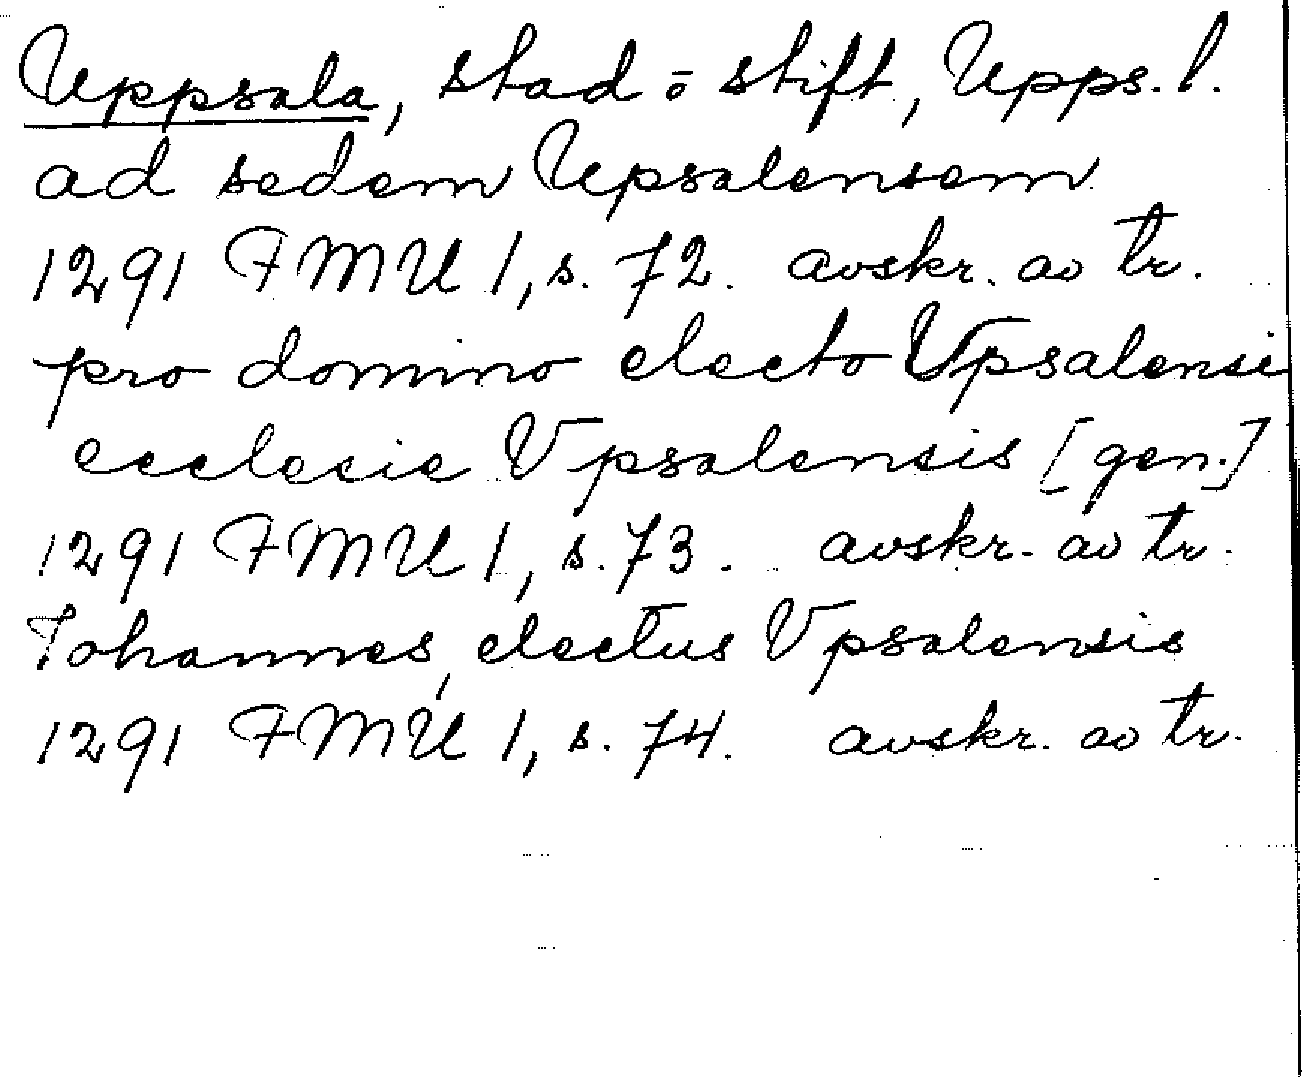 Uppsala, stad o stift, Upps. l.
ad sedem Upsalensem
1291 FMU 1, s. 72. avskr. av tr.
pro domino electo Vpsalensi
ecclesie Vpsalensis [gen.]
1291 FMU 1, s. 73. avskr. av tr.
Johannes, electus Vpsalensis
1291 FMU 1, s. 74. avskr. av tr.